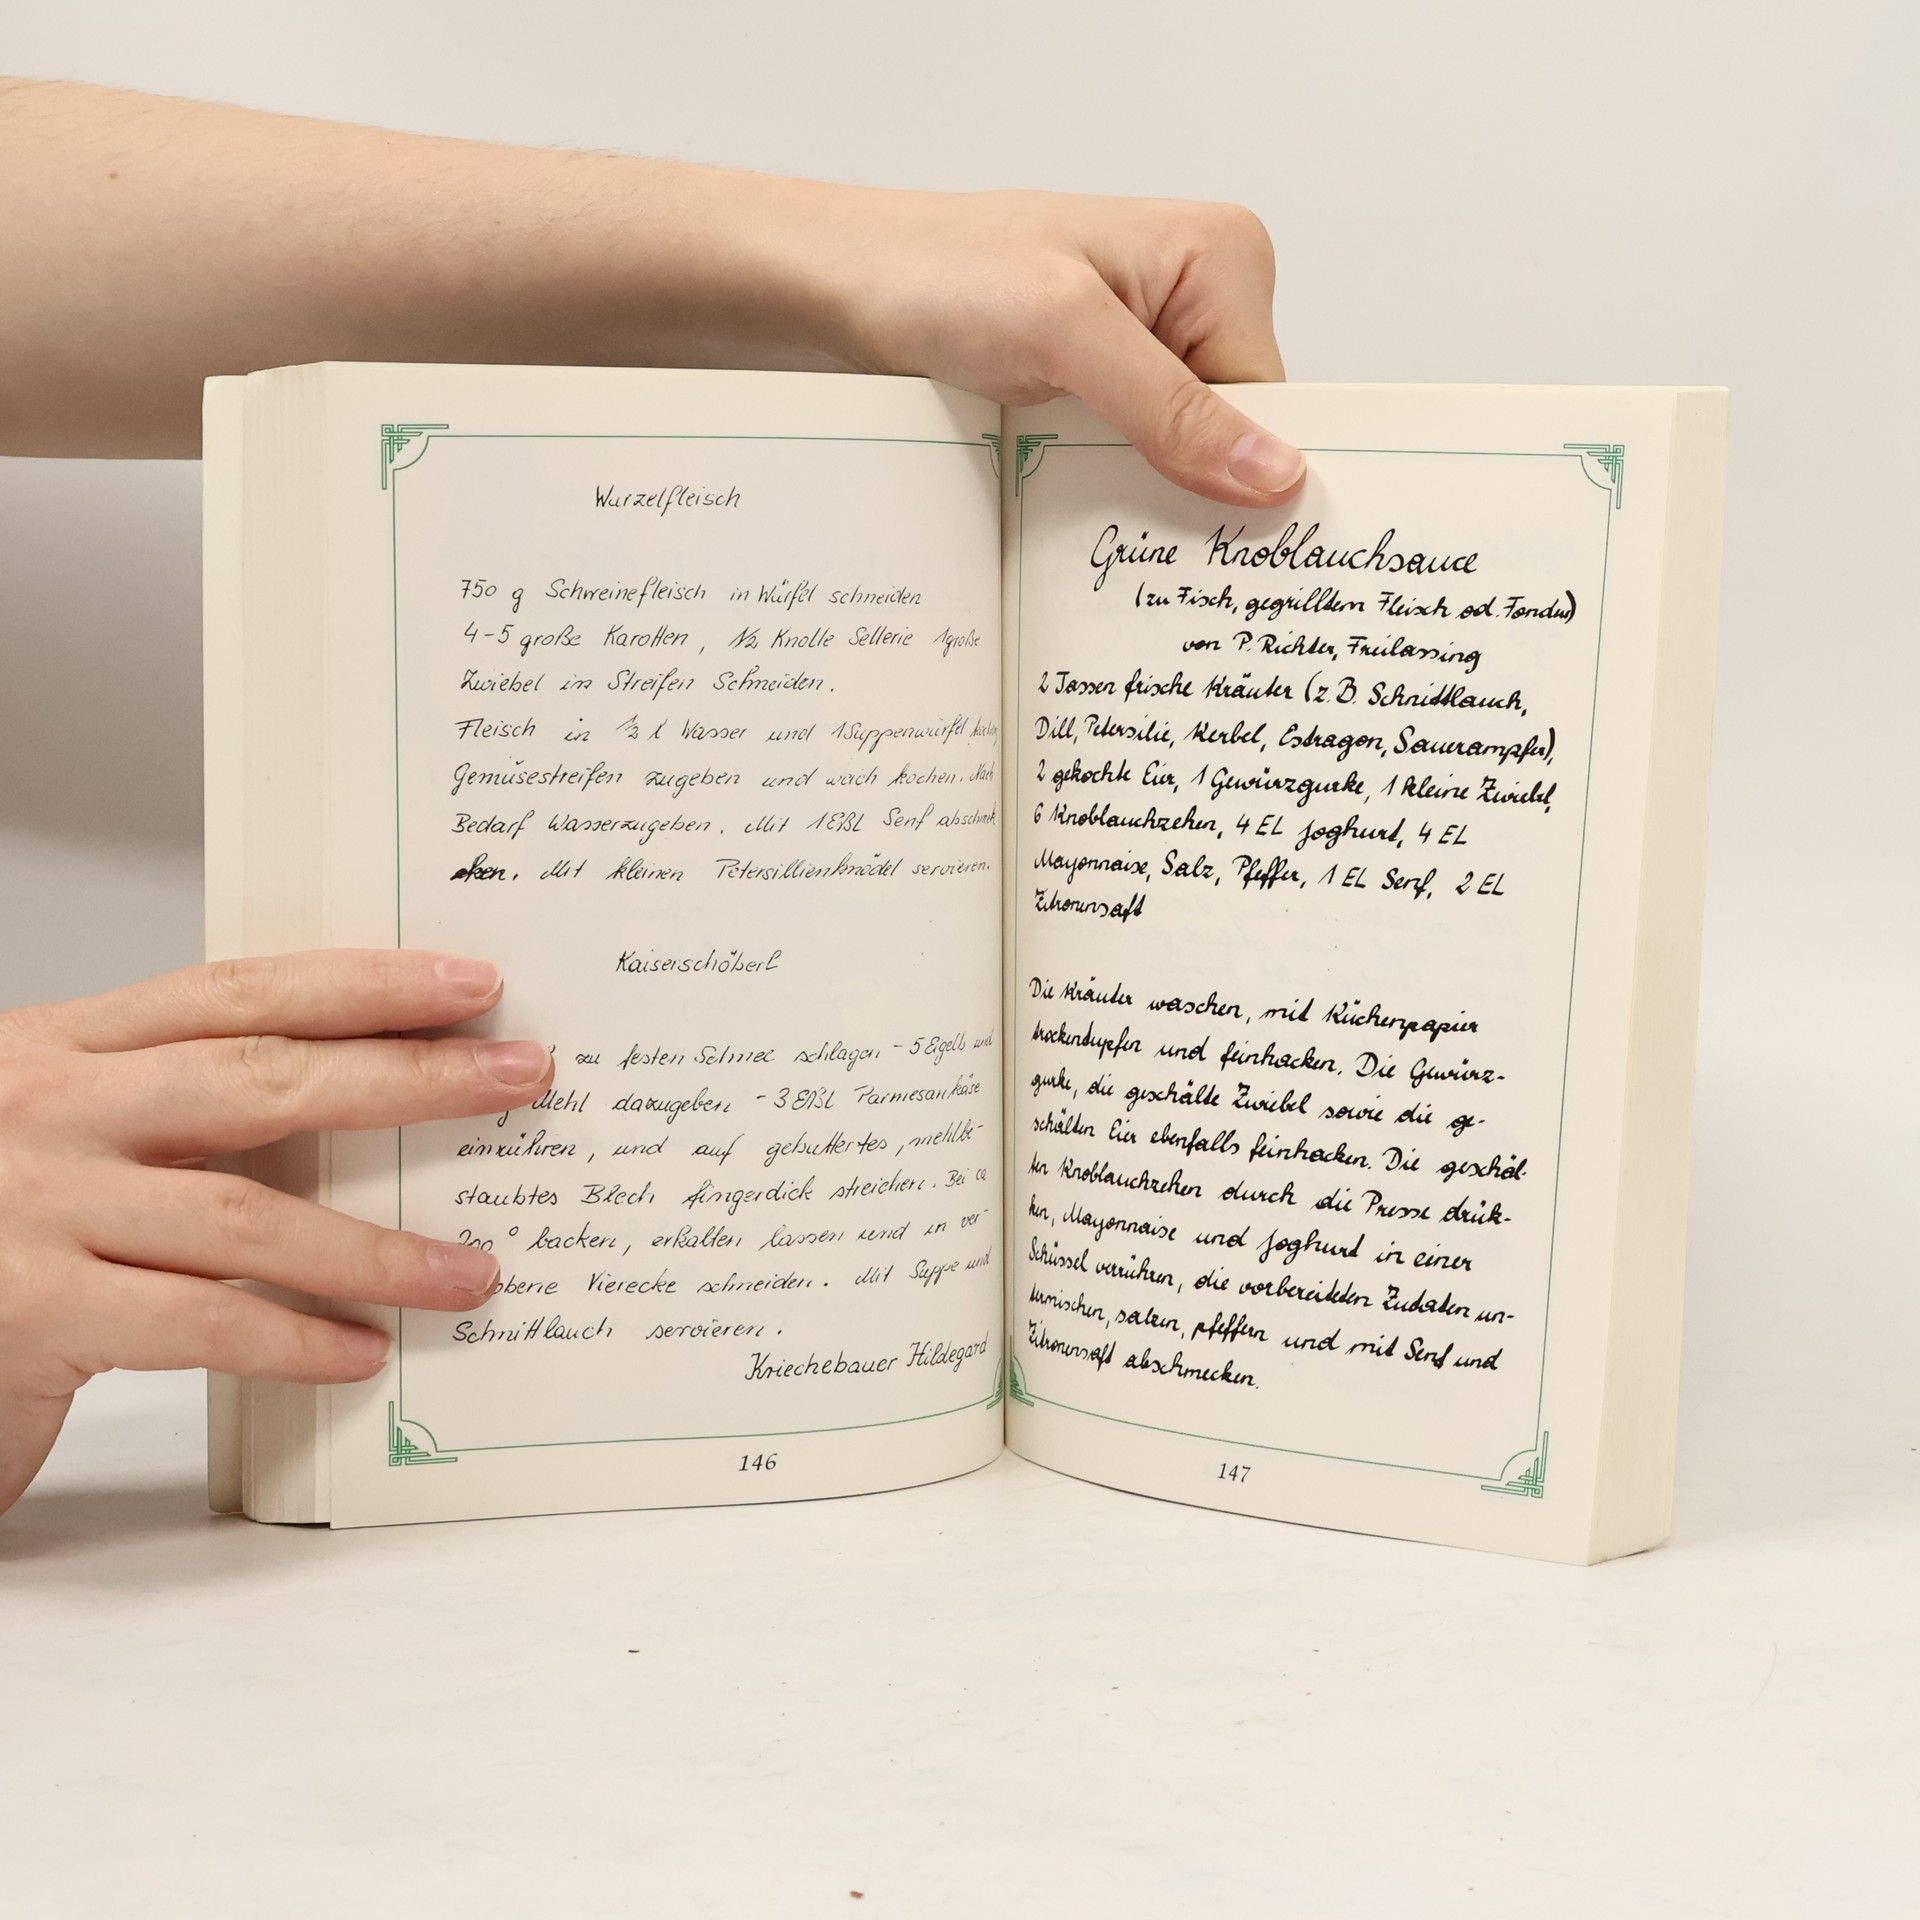 Wurzelfleisch
750 g Schweinefleisch in Würfel schneiden
4-5 große Karotten, 1/2 Knolle Sellerie 1große
Zwiebel in Streifen Schneiden.
Fleisch in l Wasser und 1Suppenwürfel
Gemüsestreifen zugeben und weich kochen. Nach
Bedarf Wasserzugeben. Mit 1Eßl Senf abschmek
cken. Mit kleinen Petersillienknödel servieren.
Kaiserschöberl
zu festen Schnee schlagen - 5 Eigelb und
Mehl dazugeben - 3 Eßl Parmesankäse
einrühren, und auf gebuttertes, mehlbe-
staubtes Blech fingerdick streichen. Bei ca
200° backen, erkalten lassen und in ver-
obene Vierecke schneiden. Mit Suppe und
Schnittlauch servieren.
Kriechebauer Hildegard
146
Grüne Knoblauchsauce
(zu Fisch, gegrilltem Fleisch od. Fondue)
von P. Richter, Freilassing
2 Tassen frische Kräuter (z.B. Schnittlauch,
Dill, Petersilie, Kerbel, Estragon, Sauerampfer),
2 gekochte Eier, 1 Gewürzgurke, 1 kleine Zwiebel,
6 Knoblauchzehen, 4 EL Joghurt, 4 EL
Mayonnaise, Salz, Pfeffer, 1 EL Senf, 2 EL
Zitronensaft
Die Kräuter waschen, mit Küchenpapier
trockentupfen und feinhacken. Die Gewürz-
gurke, die geschälte Zwiebel sowie die ge-
schälten Eier ebenfalls feinhacken. Die geschäl-
ten Knoblauchzehen durch die Presse drük-
ken, Mayonnaise und Joghurt in einer
Schüssel verrühren, die vorbereiteten Zutaten un-
termischen, salzen, pfeffern und mit Senf und
Zitronensaft abschmecken.
147